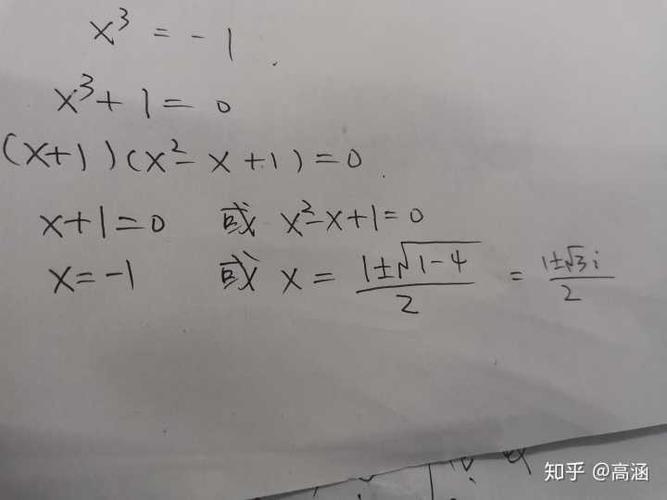 x³ = -1
x³+1=0
(x+1)(x²-x+1)=0
x+1=0 或 x²-x+1=0
x=-1 或 x = (1±√(1-4))/2 = (1±√3i)/2
知乎 @高涵